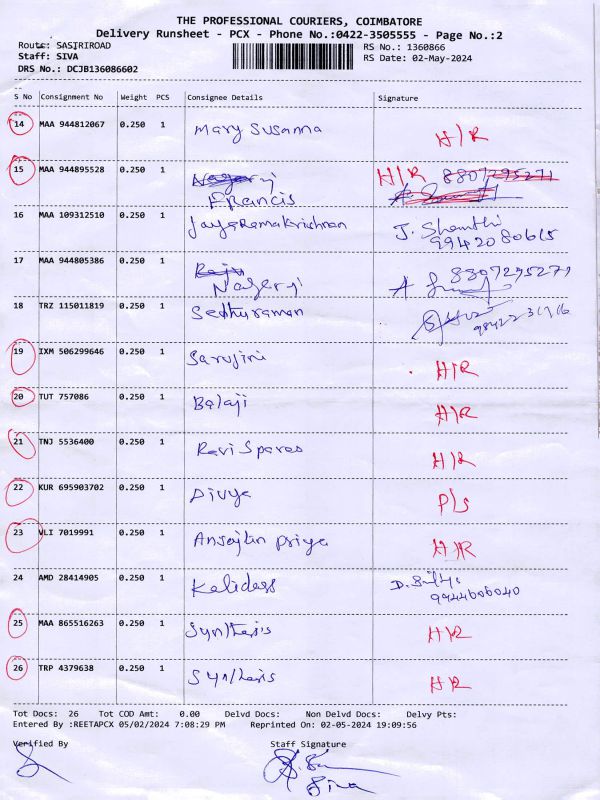 THE PROFESSIONAL COURIERS, COIMBATORE
Delivery Runsheet - PCX - Phone No.:0422-3505555 - Page No.:2
Route: SASIRIROAD
RS No.: 1360866
Staff: SIVA
RS Date: 02-May-2024
DRS No.: DCJB136086602
S No Consignment No Weight PCS Consignee Details Signature
14 MAA 944812067 0.250 1 Mary Susanna H/R
15 MAA 944895528 0.250 1 Francis H/R 8807295271
16 MAA 109312510 0.250 1 Jayaramakrishnan J. Shanthi
9942080615
17 MAA 944805386 0.250 1 Raju Nageraj 8807295271
18 TRZ 115011819 0.250 1 Sedhuraman
19 IXM 506299646 0.250 1 Sarojini H/R
20 TUT 757086 0.250 1 Balaji H/R
21 TNJ 5536400 0.250 1 Ravi Spares H/R
22 KUR 695903702 0.250 1 Divya P/S
23 VLI 7019991 0.250 1 priya H/R
24 AMD 28414905 0.250 1 Kalidass
9944606040
25 MAA 865516263 0.250 1 Synthesis H/R
26 TRP 4379638 0.250 1 Synthesis H/R
Tot Docs: 26 Tot COD Amt: 0.00 Delvd Docs: Non Delvd Docs: Delvy Pts:
Entered By :REETAPCX 05/02/2024 7:08:29 PM Reprinted On: 02-05-2024 19:09:56
Verified By Staff Signature
Siva